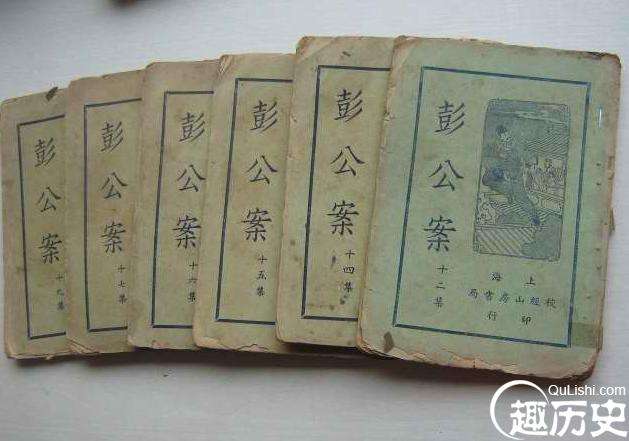 彭公案
十九集
彭公案
十七集
彭公案
十六集
彭公案
十五集
彭公案
十四集
彭公案
十二集
上海
校經山房書局
印行
QuLishi.com
趣历史